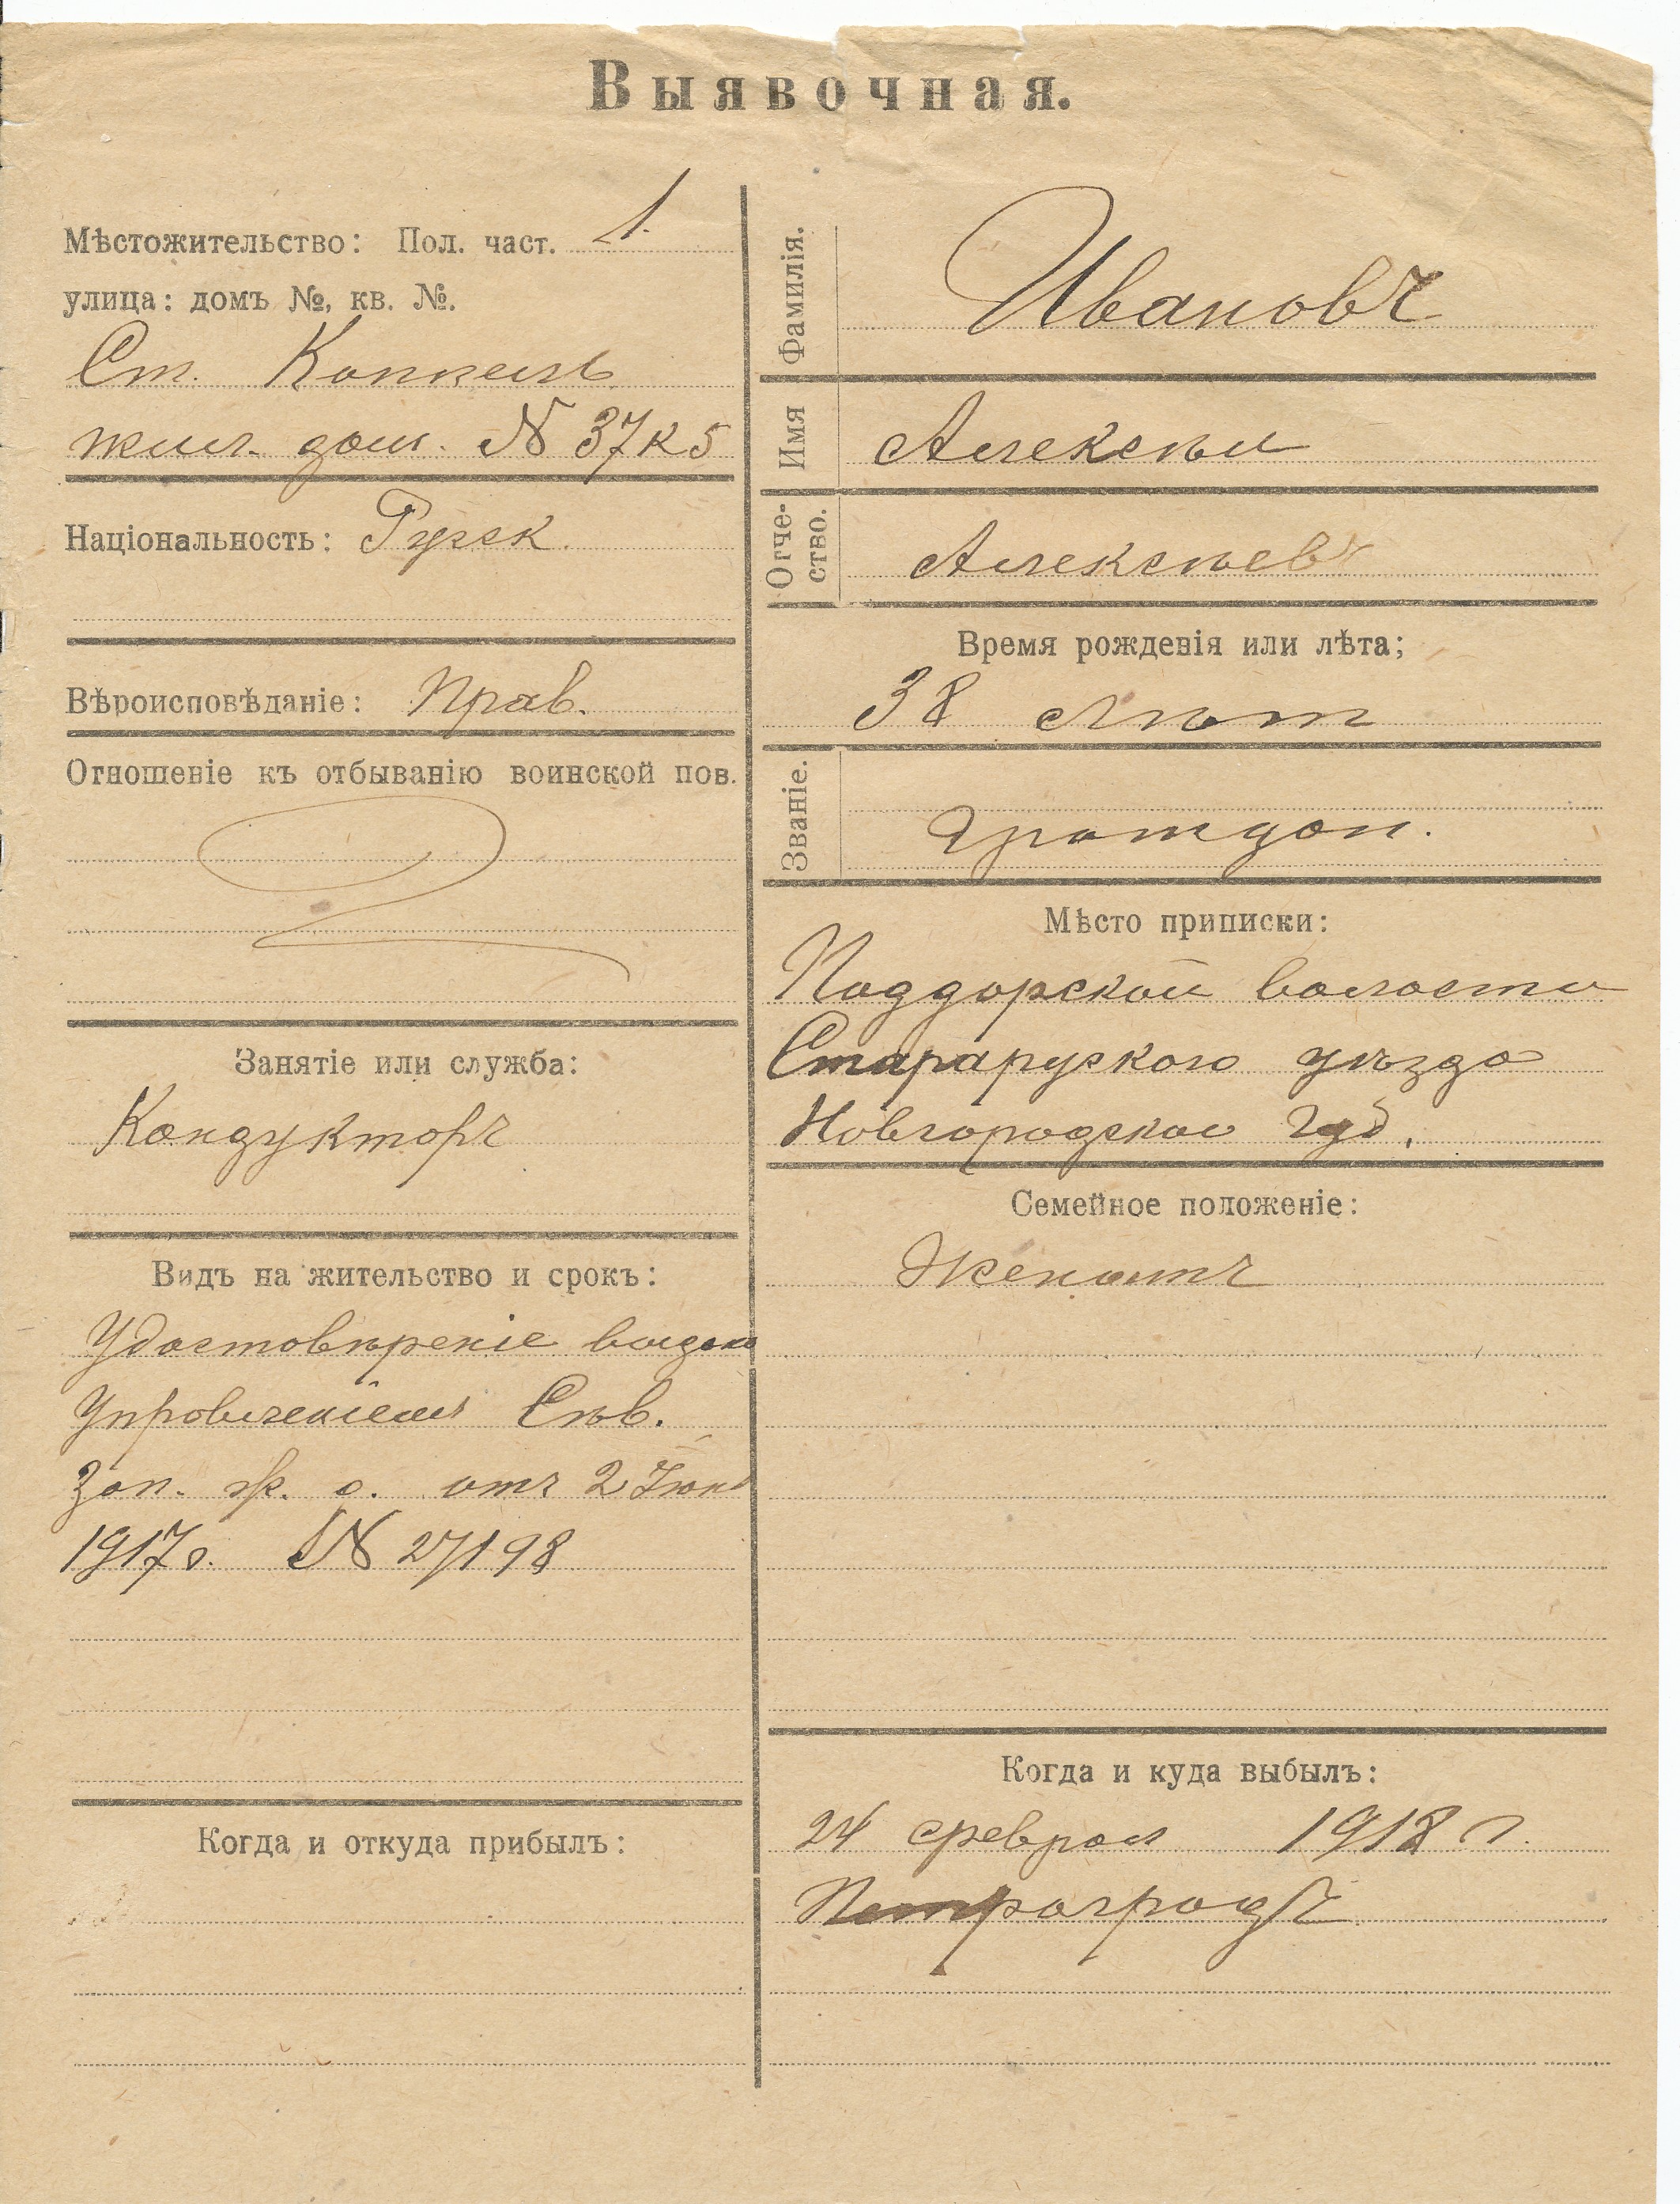 Выявочная.
Мѣстожительство: Пол. част. 1.
улица: домъ №, кв. №.
Ст. Коппель
жил. дом. N 37 к 5
Національность: Русск.
Вѣроисповѣданіе: Прав.
Отношеніе къ отбыванію воинской пов.
Занятіе или служба:
Кондукторъ
Видъ на жительство и срокъ:
Удостовѣреніе выдано
Управленіемъ Сѣв.
Зап. ж. д. отъ 2 Іюня
1917 г. N 27198
Когда и откуда прибылъ:
Фамилія. Ивановъ
Имя Алексѣй
Отчество. Алексѣевъ
Время рожденія или лѣта;
38 лѣт
Званіе. Граждан.
Мѣсто приписки:
Поддорской волости
Старарусского уѣзда
Новгородской Губ.
Семейное положеніе:
Женатъ
Когда и куда выбылъ:
24 феврал 1918 г.
Петроградъ